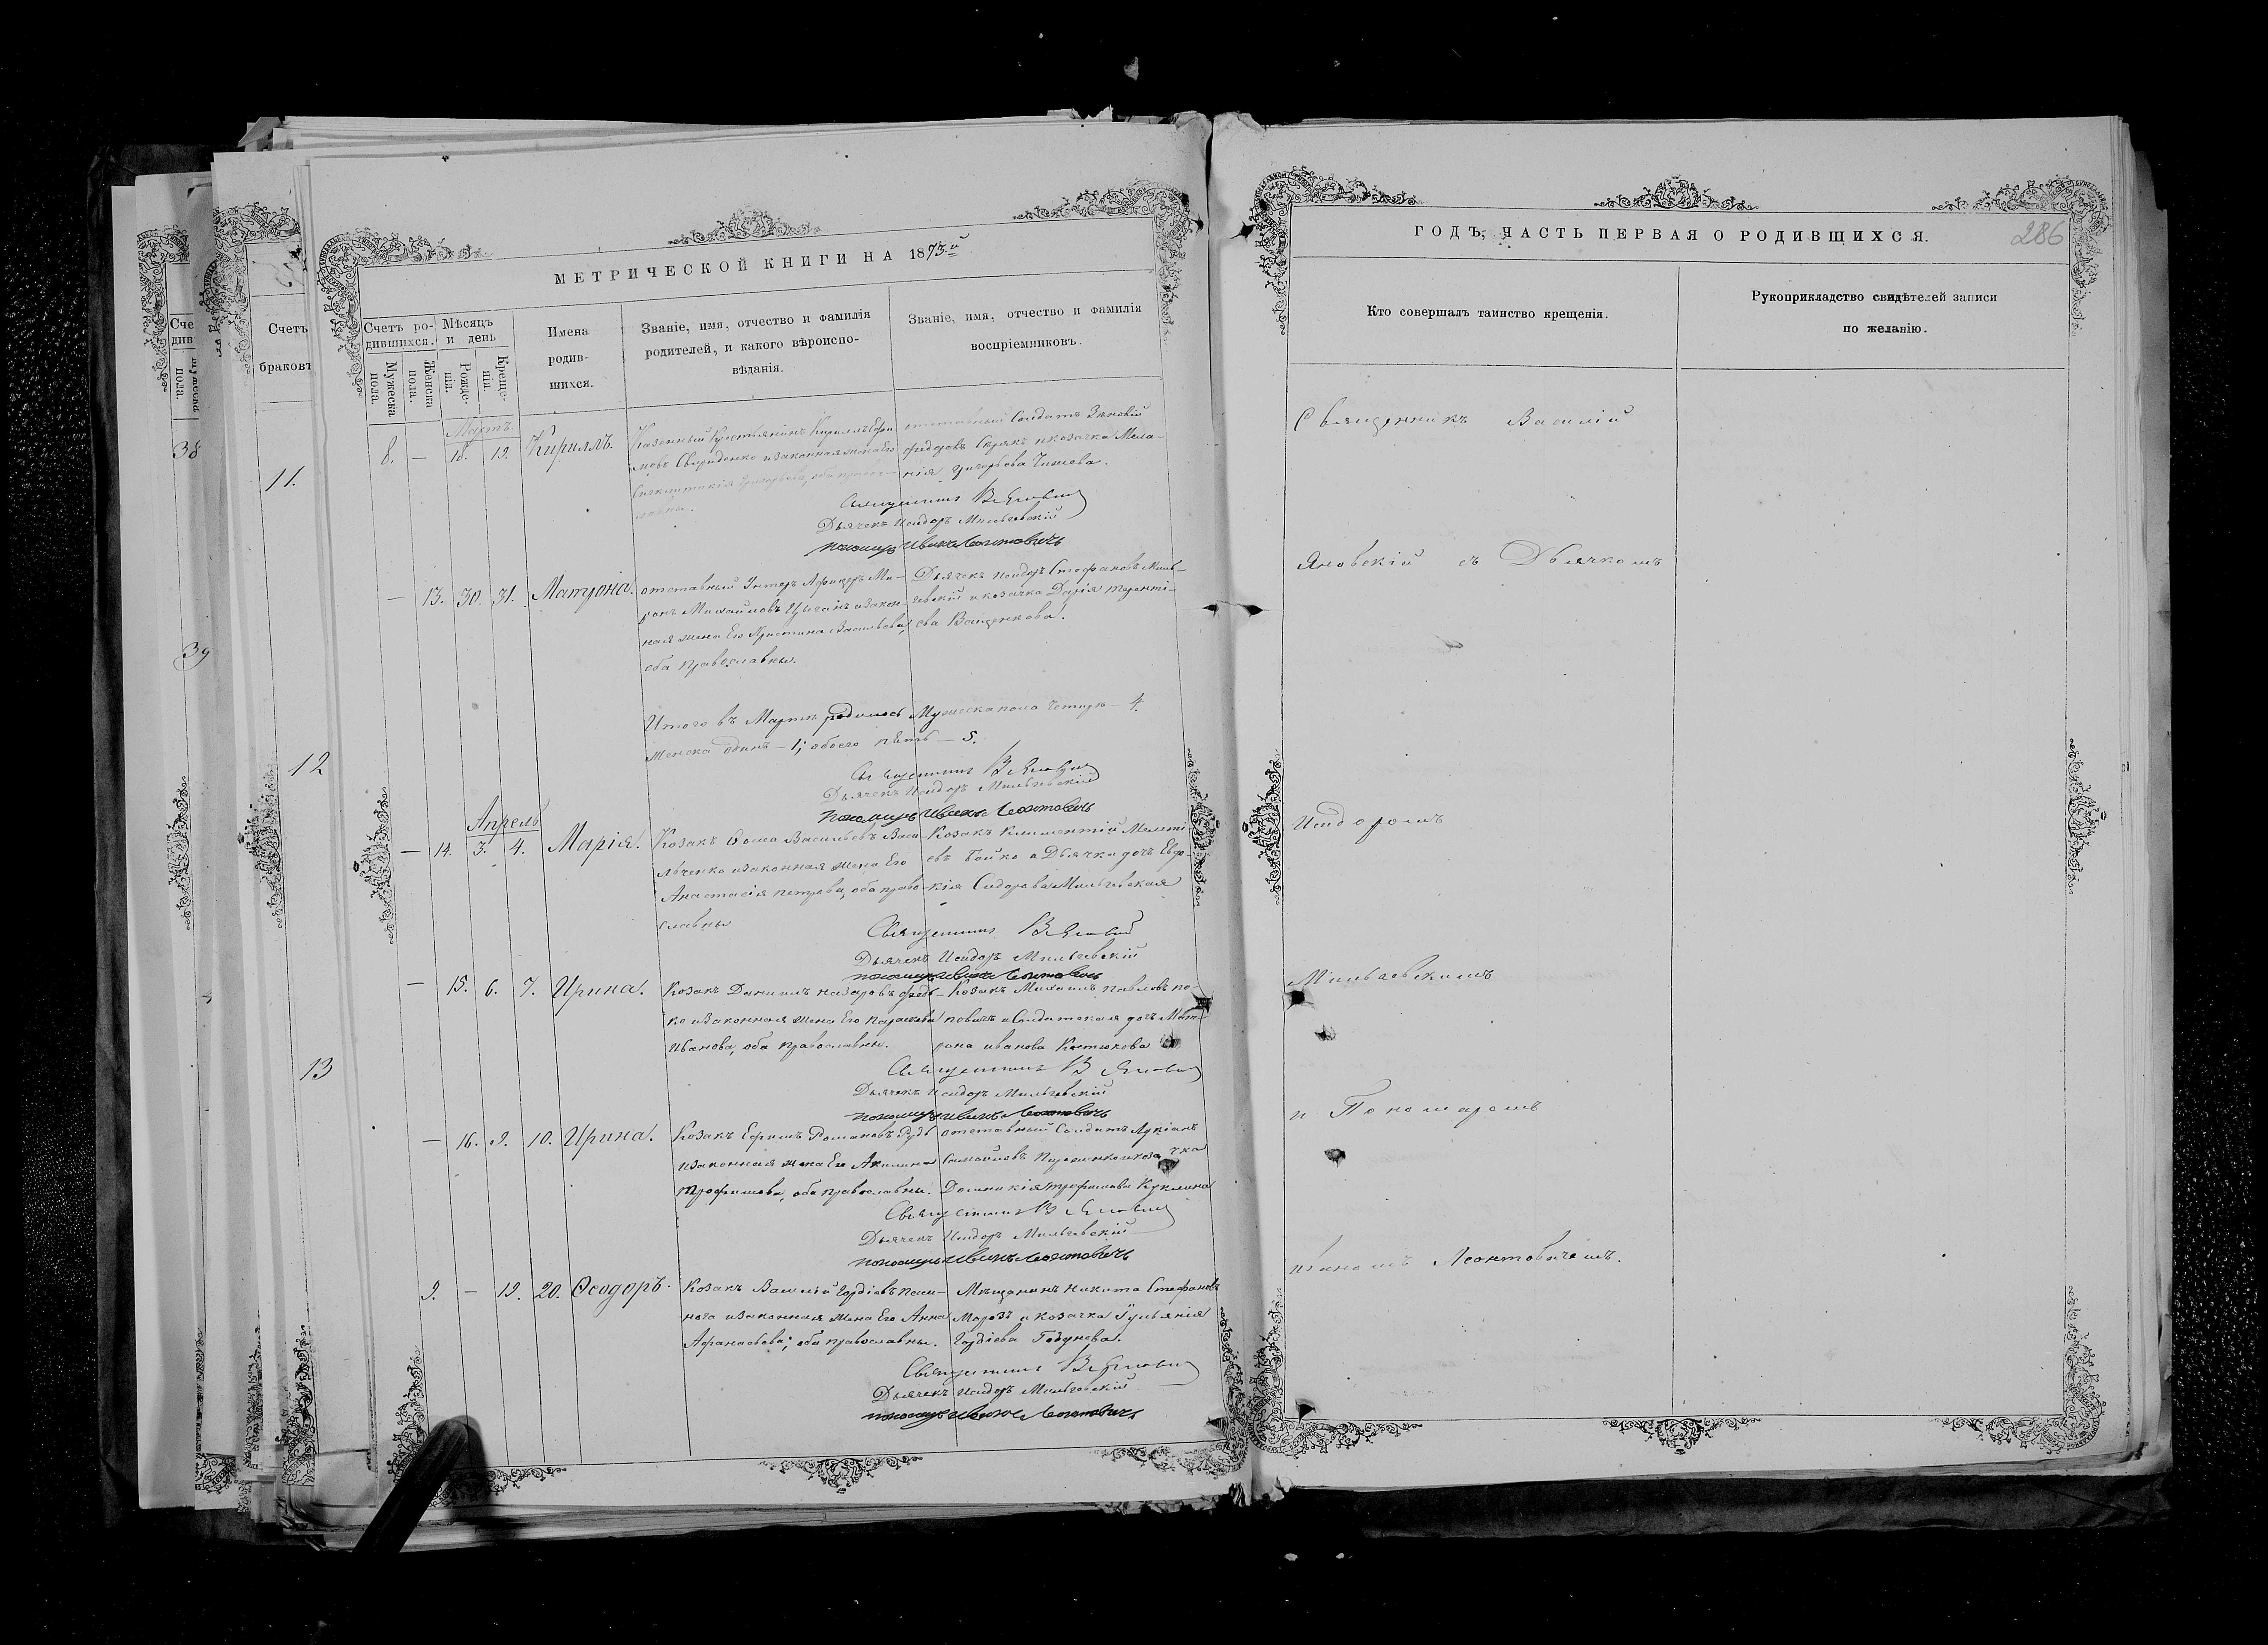 МЕТРИЧЕСКОЙ КНИГИ НА 1873й
Счетъ ро-
дившихся.
Мѣсяцъ
и день
Мужеска
пола.
Женска
пола.
Рожде-
нія.
Креще-
нія.
Имена
родив-
шихся.
Званіе, имя, отчество и фамилія
родителей, и какого вѣроиспо-
вѣданія.
Званіе, имя, отчество и фамилія
воспріемниковъ.
Мартъ
8. — 18. 19. Кириллъ.
Казенный Крестьянинъ Кириллъ
Свириденко и законная жена его
отставный Солдатъ Зѣновій
Федоровъ Скрякъ и козачка Мела-
нія Григорьева
Дьячекъ Исидоръ Мильгевскій
пономарь Иванъ Леонтовичъ
— 13. 30. 31. Матрона.
отставный Унтеръ Афицеръ Ми-
ронъ Михайловъ Цыганъ и закон-
ная жена Его Христина Васильева,
оба православны.
Дьячекъ Исидоръ Стефановъ Миль-
гевскій и козачка Дарія Теренті-
ева Ващенкова.
Итого въ Мартѣ родилось Мужеска пола четыре — 4.
женска одинъ — 1; обоего пять — 5.
Дьячекъ Исидоръ Мильгевскій
Пономарь Иванъ Леонтовичъ
Апрель
— 14. 3. 4. Марія.
Козакъ Фома Васильевъ Васи-
льченко и законная жена Его
Анастасія Петрова, оба право-
славны
Козакъ Климентій Мелеті-
евъ Бойко и Дьячка дочь Евдо-
кія Сидорова Мильгевская
Священникъ В Яновскій
Дьячекъ Исидоръ Мильгевскій
пономарь Иванъ Леонтовичъ
— 15. 6. 7. Ирина.
Козакъ Даніилъ Назаровъ Федь-
ко и законная жена Его Параскева
Иванова, оба православны.
Козакъ Михаилъ Павловъ По-
повичъ и Солдатская дочь Мат-
рона Иванова Костюкова
Дьячекъ Исидоръ Мильгевскій
пономарь Иванъ Леонтовичъ
— 16. 9. 10. Ирина.
Козакъ Ефимъ Романовъ Рудь
и законная жена Его Акилина
Трофимова, оба православны.
отставный Солдатъ Лукіанъ
Самойловъ козачка
Домникія Трофимова
Дьячекъ Исидоръ Мильгевскій
пономарь Иванъ Леонтовичъ
9. — 19. 20. Ѳеодоръ.
Козакъ Василій Гордіевъ
и законная жена Его Анна
Афанасьева; оба православны.
Мѣщанинъ Никита Стефановъ
Морозъ и козачка Іульянія
Гордіева Годунова.
Дьячекъ Исидоръ Мильгевскій
пономарь Иванъ Леонтовичъ
ГОДЪ, ЧАСТЬ ПЕРВАЯ О РОДИВШИХСЯ.
286
Кто совершалъ таинство крещенія.
Рукоприкладство свидѣтелей записи
по желанію.
Священникъ Василій
Яновскій съ Дьячкомъ
Исидоромъ
Мильгевскимъ
и Пономаремъ
Иваномъ Леонтовичемъ.
Счетъ
браковъ
11.
12
13
38
39